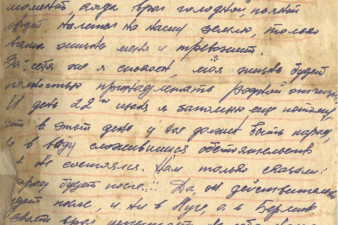 момент, когда враг голодной, 
 налетел на нашу землю, только
ваша жизнь меня и тревожит.
За себя же я спокоен, моя жизнь будет
полностью принадлежать родной отчизне.
И день 22го июня я запомню еще потому,
что в этот день у нас должен быть парад,
и в виду сложившихся обстоятельств
не состоялся. Нам только сказали:
парад будет после... Да, он действительно
будет после, и не в Луге, а в Берлине